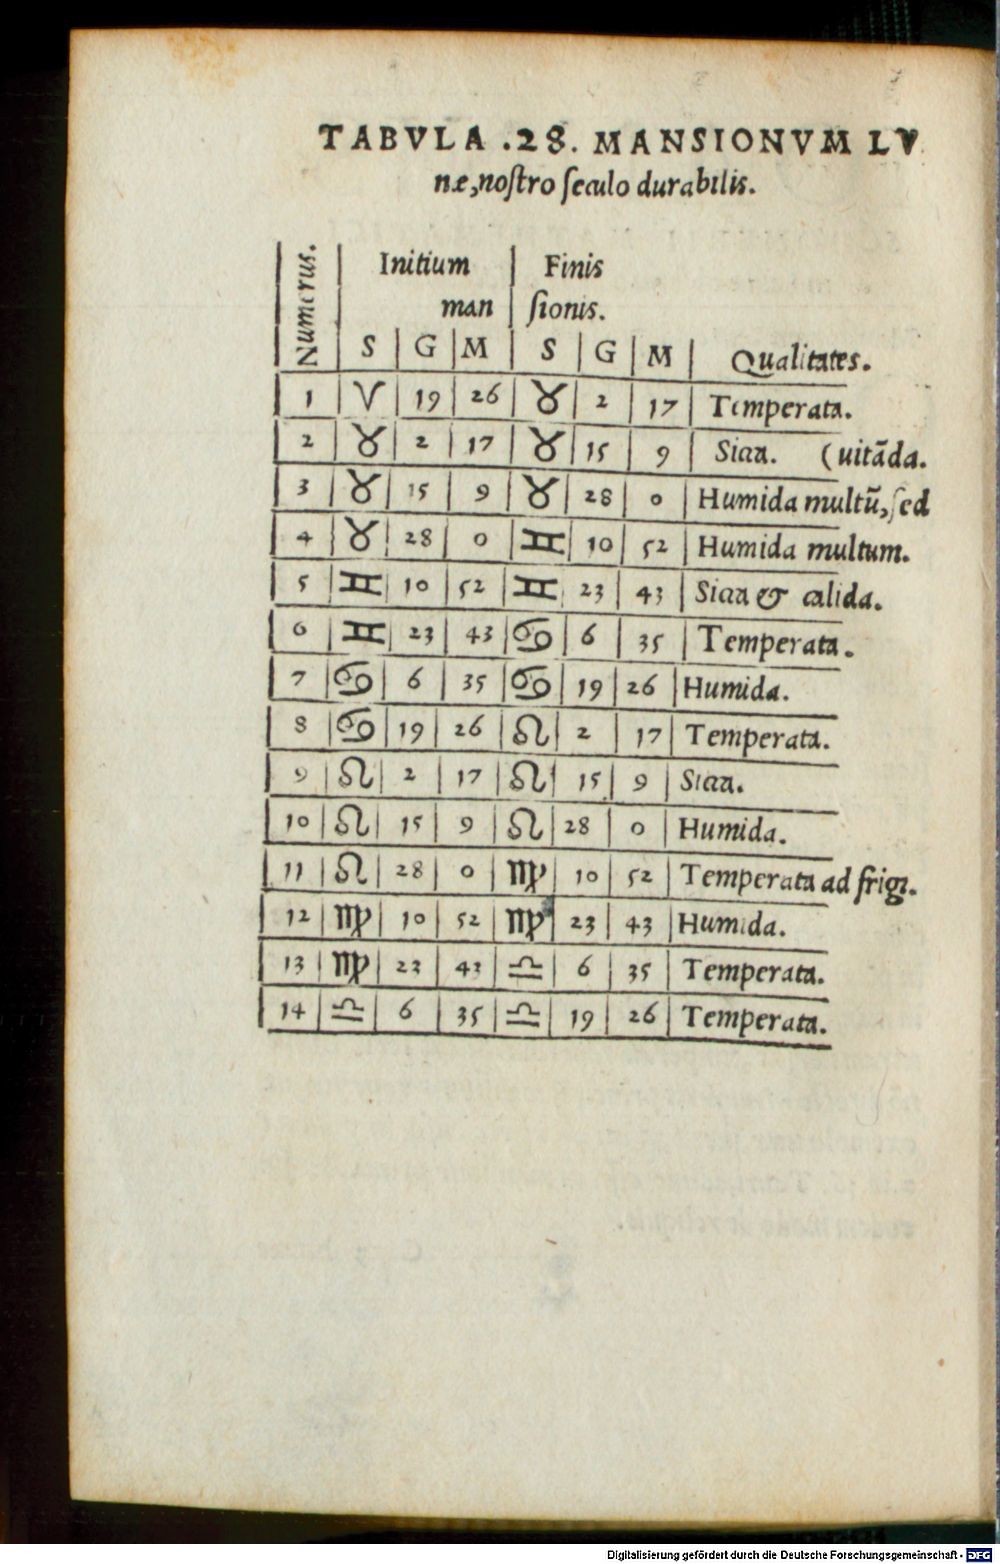 TABVLA .28. MANSIONVM LV
næ, noſtro ſeculo durabilis.
Numerus. | Initium | Finis
man | ſionis.
S | G | M | S | G | M | Qualitates.
1 | ♈ | 19 | 26 | ♉ | 2 | 17 | Temperata.
2 | ♉ | 2 | 17 | ♉ | 15 | 9 | Sicca. (uitãda.
3 | ♉ | 15 | 9 | ♉ | 28 | 0 | Humida multũ, ſed
4 | ♉ | 28 | 0 | ♊ | 10 | 52 | Humida multum.
5 | ♊ | 10 | 52 | ♊ | 23 | 43 | Sicca & calida.
6 | ♊ | 23 | 43 | ♋ | 6 | 35 | Temperata.
7 | ♋ | 6 | 35 | ♋ | 19 | 26 | Humida.
8 | ♋ | 19 | 26 | ♌ | 2 | 17 | Temperata.
9 | ♌ | 2 | 17 | ♌ | 15 | 9 | Sicca.
10 | ♌ | 15 | 9 | ♌ | 28 | 0 | Humida.
11 | ♌ | 28 | 0 | ♍ | 10 | 52 | Temperata ad frigi.
12 | ♍ | 10 | 52 | ♍ | 23 | 43 | Humida.
13 | ♍ | 23 | 43 | ♎ | 6 | 35 | Temperata.
14 | ♎ | 6 | 35 | ♎ | 19 | 26 | Temperata.
Digitalisierung gefördert durch die Deutsche Forschungsgemeinschaft - DFG